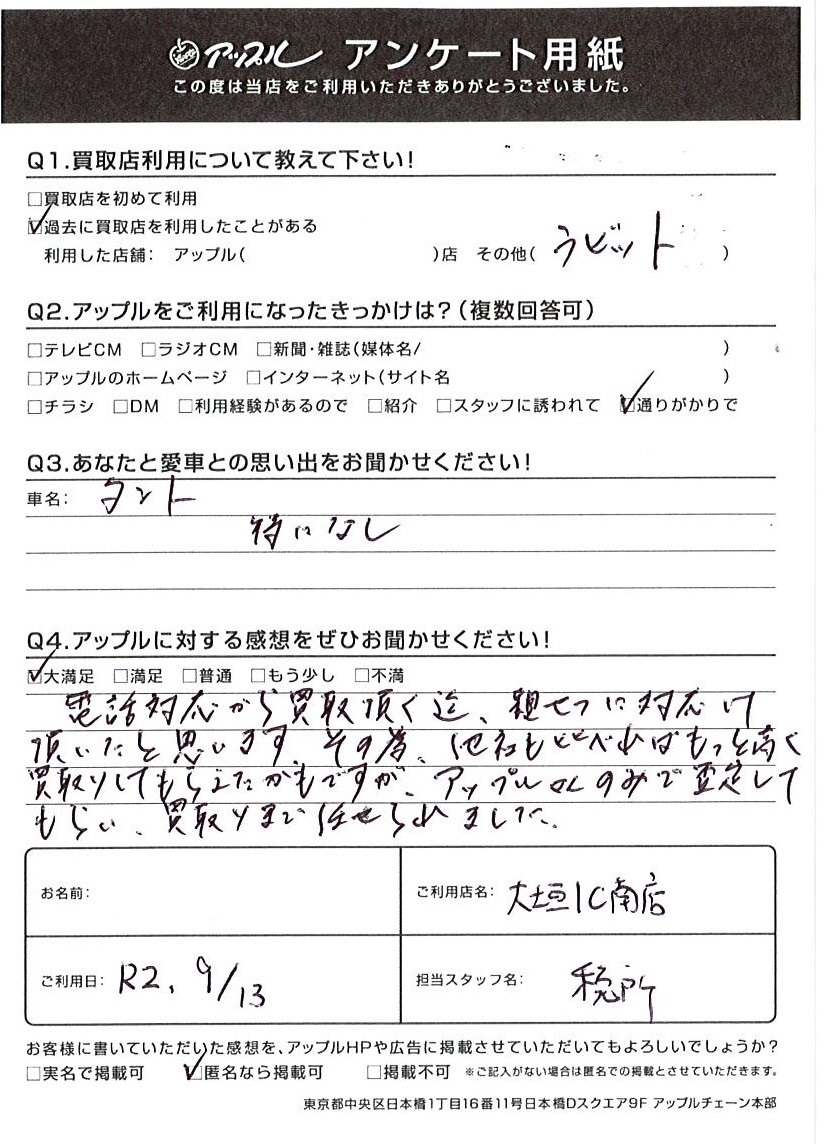 アップル アンケート用紙
この度は当店をご利用いただきありがとうございました。
Q1.買取店利用について教えて下さい!
□買取店を初めて利用
☑過去に買取店を利用したことがある
利用した店舗: アップル( )店 その他( ラビット )
Q2.アップルをご利用になったきっかけは?(複数回答可)
□テレビCM □ラジオCM □新聞・雑誌(媒体名/ )
□アップルのホームページ □インターネット(サイト名 )
□チラシ □DM □利用経験があるので □紹介 □スタッフに誘われて ☑通りがかりで
Q3.あなたと愛車との思い出をお聞かせください!
車名: タント
特になし
Q4.アップルに対する感想をぜひお聞かせください!
☑大満足 □満足 □普通 □もう少し □不満
電話対応から買取頂く迄、親切に対応け
頂いたと思います。その為、他社もくらべればもっと高く
買取りしてもらえたかもですが、アップルさんのみで査定して
もらい、買取りまで任せられました。
お名前:
ご利用店名: 大垣IC南店
ご利用日: R2. 9/13
担当スタッフ名: 税所
お客様に書いていただいた感想を、アップルHPや広告に掲載させていただいてもよろしいでしょうか?
□実名で掲載可 ☑匿名なら掲載可 □掲載不可 ※ご記入がない場合は匿名での掲載とさせていただきます。
東京都中央区日本橋1丁目16番11号日本橋Dスクエア9F アップルチェーン本部